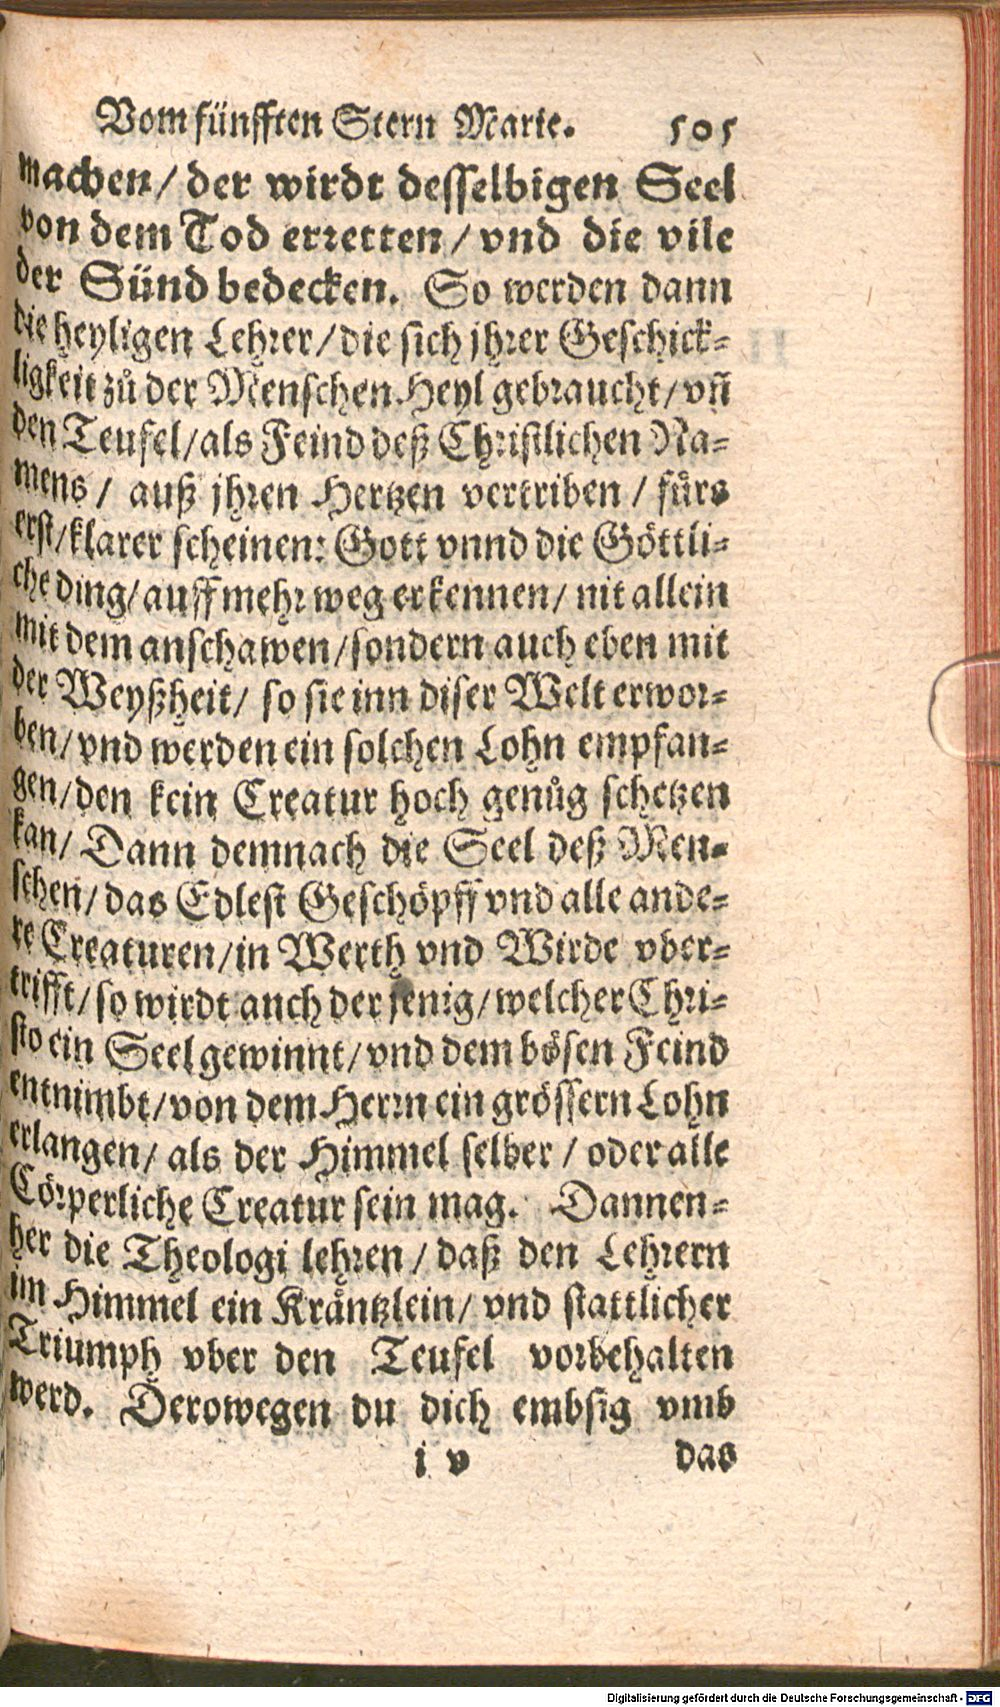 Vom fünfften Stern Marie. 505
machen/ der wirdt desselbigen Seel
von dem Tod erretten/ vnd die vile
der Sünd bedecken. So werden dann
die heyligen Lehrer/ die sich jhrer Geschick-
ligkeit zů der Menschen Heyl gebraucht/ vñ
den Teufel/ als Feind deß Christlichen Na-
mens/ auß jhren Hertzen vertriben/ fůrs
erst/ klarer scheinen: Gott vnnd die Göttli-
che ding/ auff mehr weg erkennen/ nit allein
mit dem anschawen/ sondern auch eben mit
der Weyßheit/ so sie inn diser Welt erwor-
ben/ vnd werden ein solchen Lohn empfan-
gen/ den kein Creatur hoch genůg schetzen
kan/ Dann demnach die Seel deß Men-
schen/ das Edlest Geschöpff vnd alle ande-
re Creaturen/ in Werth vnd Wirde vber-
trifft/ so wirdt auch der jenig/ welcher Chri-
sto ein Seel gewinnt/ vnd dem bösen Feind
entnimbt/ von dem Herrn ein grössern Lohn
erlangen/ als der Himmel selber/ oder alle
Cörperliche Creatur sein mag. Dannen-
her die Theologi lehren/ daß den Lehrern
im Himmel ein Kräntzlein/ vnd stattlicher
Triumph vber den Teufel vorbehalten
werd. Derowegen du dich embsig vmb
i v das
Digitalisierung gefördert durch die Deutsche Forschungsgemeinschaft - DFG